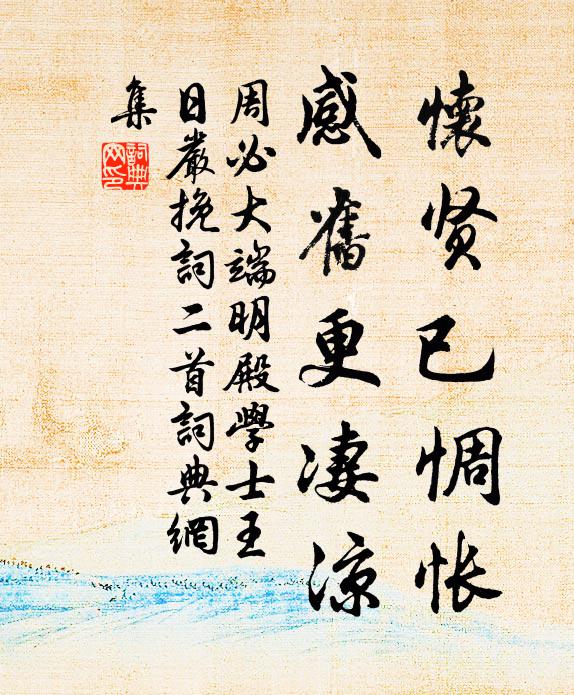 懷贤已惆怅
感舊更凄涼
周必大端明殿學士王
日嚴挽詞二首詞典網
集
詞典
网印